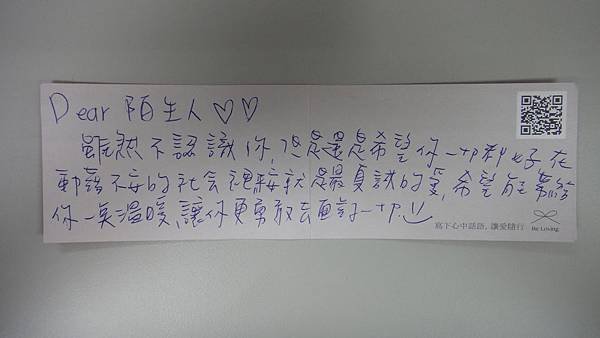 Dear 陌生人♡♡
雖然不認識你,但是還是希望你一切都好在
動盪不安的社會裡接就是最真誠的愛,希望能帶給
你一點溫暖,讓你更勇敢去面對一切:)
寫下心中話語,讓愛隨行 Be Loving